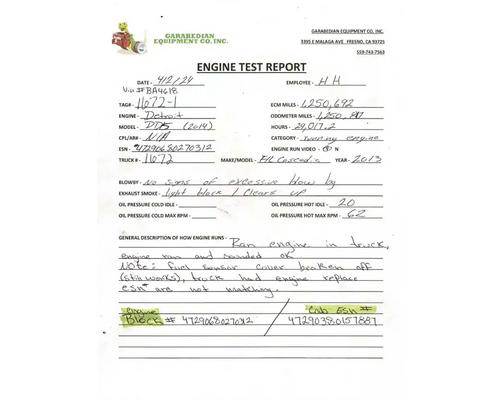 GARABEDIAN
EQUIPMENT CO, INC.
GARABEDIAN EQUIPMENT CO, INC.
3395 E MALAGA AVE FRESNO, CA 93725
559-743-7563
ENGINE TEST REPORT
DATE - 4/2/24 EMPLOYEE - H H
Vin # BA4618
TAG# 11672-1 ECM MILES - 1,250,692
ENGINE - Detroit ODOMETER MILES - 1,250,
MODEL - DD15 (2014) HOURS - 29,017.2
CPL/AR# - N/A CATEGORY - running engine
ESN - 472906802 70312 ENGINE RUN VIDEO - Y N
TRUCK # - 11672 MAKE/MODEL - F/L Cascadia YEAR - 2013
BLOWBY - No signs of excessive blow by
EXHAUST SMOKE - light black / Clears up
OIL PRESSURE COLD IDLE - OIL PRESSURE HOT IDLE - 20
OIL PRESSURE COLD MAX RPM - OIL PRESSURE HOT MAX RPM - 62
GENERAL DESCRIPTION OF HOW ENGINE RUNS - Ran engine in truck,
engine ran and sounded OK
Note: fuel sensor cover broken off
(still works), truck had engine replace
esn# are not matching.
Engine Cab Esn #
Block # 472906802 70312 / 47290380157887